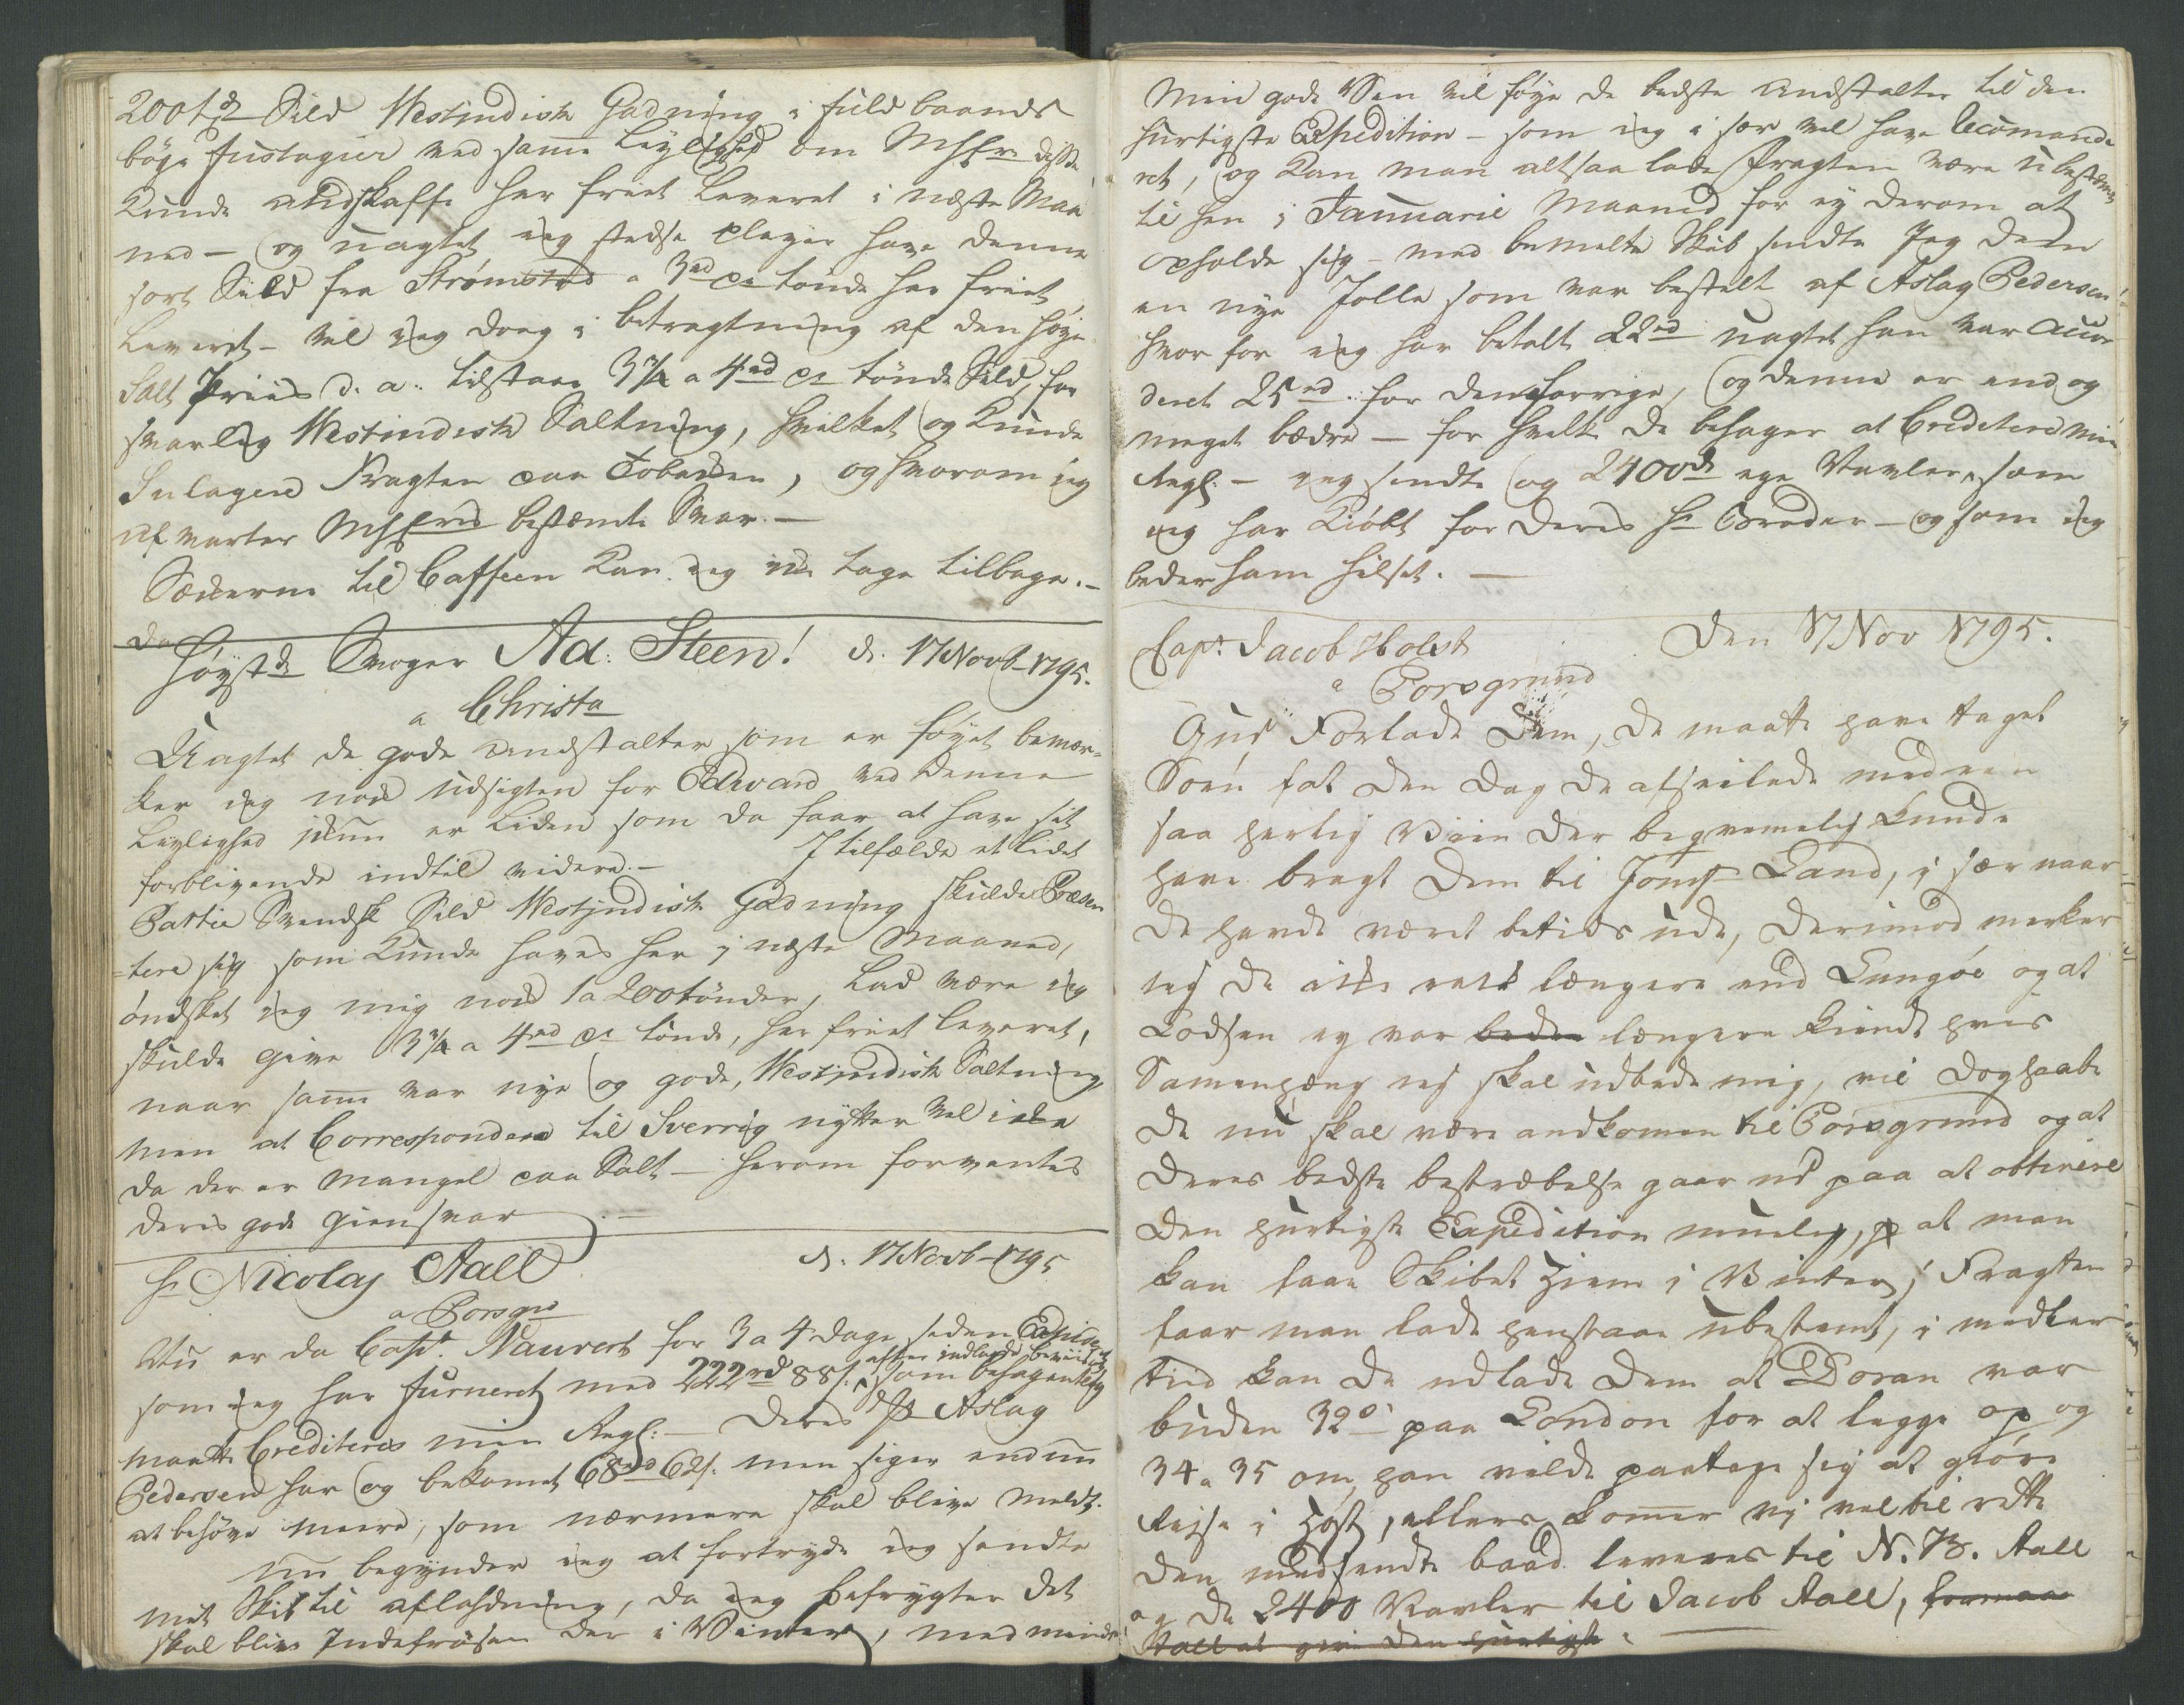 200 td Sild Westjndisk Gadning i fuld baands
böge fustagier ved samme Leylighed om MHHr: disse
kunde andskaffe her friet Leveret i næste Maa-
ned - og uagtet jeg stedse pleyer have denne
sort Sild fra Strømstad a 3rd pr tönde her friet
Leveret - vil jeg dog i betragtning af den höye
Salt Priis d. a. tilstaae 3¾ a 4rd pr tönde Sild, for
svarlig Westindisk Saltning, hvilket og kunde
Fragten paa, og hvorom jeg
af varter MHHrs bestemte Svar. -
til Caffeen kan jeg tage tilbage. -
Höystd Svoger Ad: Steen! d. 17 Novb 1795.
a Christa
Uagtet de gode andstalter som er föyet bemær-
ker jeg nok udsigten for Edvard ved denne
Leylighed er Liden som da faar at have sit
forblivende indtil videre. - I tilfælde et lidet
Partie Svendsk Sild Westjndisk Gadning skulde Præsen
=tere sig som kunde haves her i næste Maaned,
öndsket jeg mig nok 1 a 200 tönder, Lad være jeg
skulde give 3¾ a 4rd pr tönde, her friet leveret,
naar samme var nye og gode, Westjndisk Saltning
men at Correspondere til Sverrig nytter vel icke
da der er Mangel paa Salt - herom forventes
deres gode giensvar. -
Hr Nicolaj Aall d. 17 Novb 1795
a Porsgrd
Nu er da Capt. Nauvert for 3 a 4 dage siden
efter indlagde beviis
som jeg har furneret med 222rd 88s. som behageligst
maatte Crediteres min Regl: - Deres Hr Aslag
Pedersen har og bekomet 68rd 62s. men siger endnu
at behöve meere, som nærmere skal blive meldt.
nu begynder jeg at fortryde jeg sendte
mit Skib til afladning, da jeg befrygter det
skal blive Indefrosen der i Vinter, med mindre
Min gode Ven vil föye de bedste andstalter til den
hurtigste Expedition - som jeg i sær vil have recomande
ret, og kan man altsaa lade fragten være ubestemt
til hen i Januarii Maaned for ey derom at
opholde sig - med bemelte Skib sendte jeg dem
en nye Jolle som var bestelt af Aslag Pedersen
hvor for jeg har betalt 22rd uagtet han var accor
deret 25rd for den forrige, og denne er end og
meget bædre - for hvilke de behager at Creditere min
Regl: - jeg sendte og 2400 som
jeg har kiöbt for Deres Hr Broder - og som jeg
beder ham hilset. -
Capt. Jacob Holst Den 17 Nov 1795.
a Porsgrund
Gud Forlade Dem, De maatte have taget
Soen fat den Dag De afseilede med een
saa herlig Viin der beqvemelig kunde
have bragt dem til Jomf. Land, i sær naar
De havde været betids ude, derimod merker
jeg De icke rak længere end Langöe og at
Lodsen ey var beden længere kiendt hvis
Samenhæng jeg skal udbede mig, vil dog haabe
De nu skal være andkomen til Porsgrund og at
Deres bedste bestræbelse gaar ud paa at obtinere
den hurtigste Expedition muelig, at man
kan faae Skibet hiem i Vinter, Fragten
faar man lade henstaae ubestemt, i midler
tiid kan De udlade Dem at Doran var
buden 32s paa London for at legge op og
34 a 35 om han vilde paatage sig at giöre
Rejse i höst, ellers komer vj vel til rette
den medsendte baad leveres til N. B. Aall
og de 2400 til Jacob Aall, formaae
Aall at give den hurtigste.